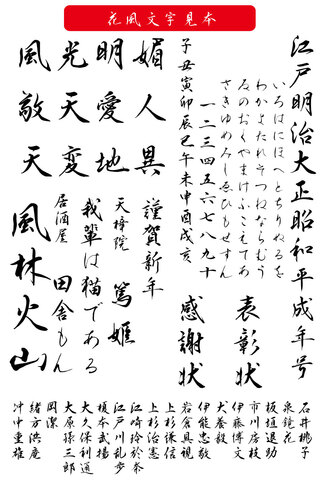 花風文字見本
江戸明治大正昭和平成年号
いろはにほへとちりぬるを
わかよたれそつねならむう
ゐのおくやまけふこえてあ
さきゆめみしゑひもせすん
一二三四五六七八九十
子丑寅卯辰巳午未申酉戌亥
媚人異
明愛地
光天変
風敬天
表彰状
感謝状
謹賀新年
天璋院
篤姫
我輩は猫である
居酒屋
田舎もん
風林火山
石井桃子
泉鏡花
板垣退助
市川房枝
伊藤博文
犬養毅
伊能忠敬
岩倉具視
上杉謙信
上杉治憲
江崎玲於奈
江戸川乱歩
榎本武揚
大久保利通
大原孫三郎
岡潔
緒方洪庵
沖中重雄